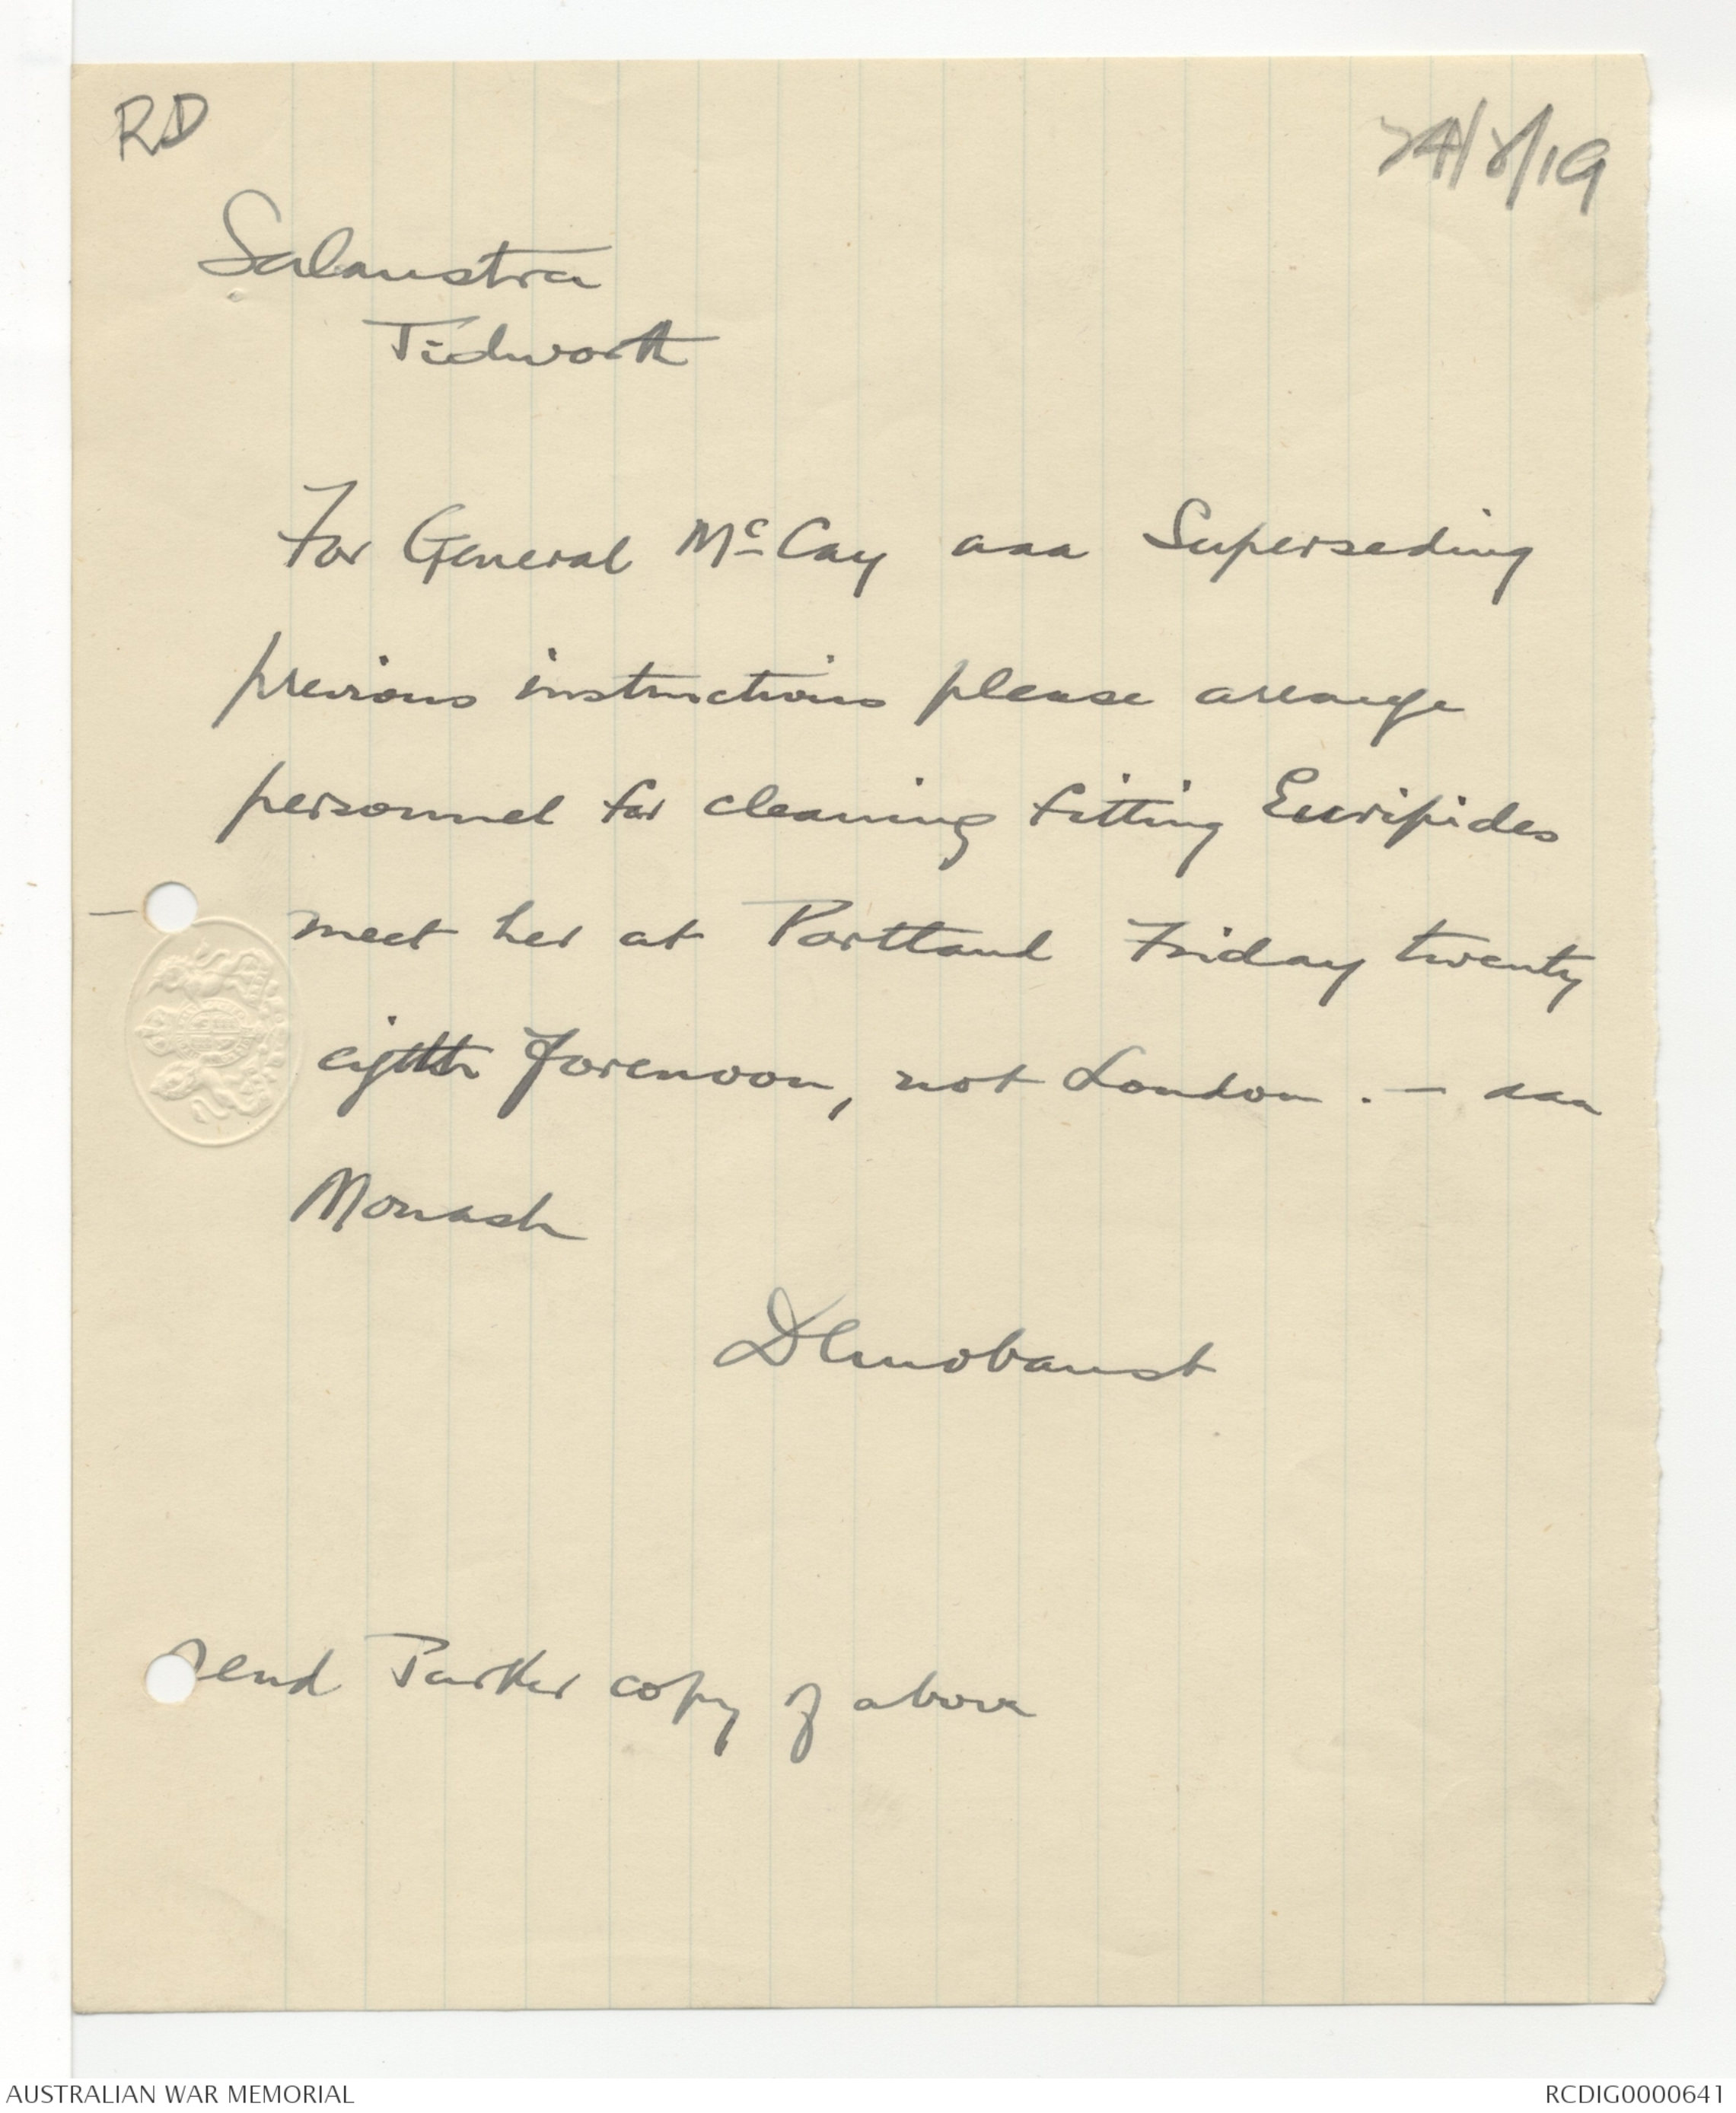 RD
24/2/19
Salaustra
Tidworth
For General Mc Cay aaa Superseding
previous instructions please arrange
personnel for cleaning fitting Euripides
meet her at Portland Friday twenty
eighth forenoon, not London. - aaa
Monash
Send Parker copy of above
AUSTRALIAN WAR MEMORIAL
RCDIG0000641